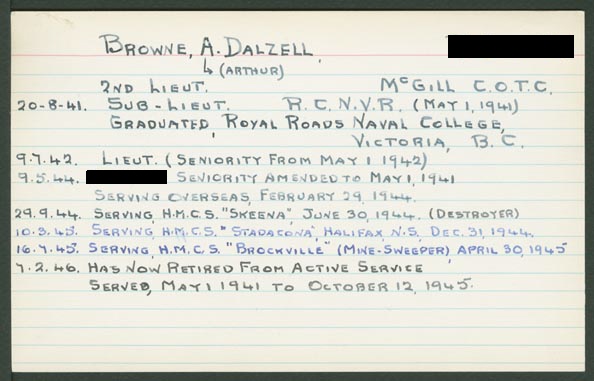 BROWNE, A. DALZELL,
↳ (ARTHUR)
2ND LIEUT. McGILL C.O.T.C.
20-8-41. SUB-LIEUT. R.C.N.V.R. (MAY 1, 1941)
GRADUATED, ROYAL ROADS NAVAL COLLEGE,
VICTORIA, B.C.
9.7.42. LIEUT. (SENIORITY FROM MAY 1 1942)
9.5.44. SENIORITY AMENDED TO MAY 1, 1941
SERVING OVERSEAS, FEBRUARY 29, 1944.
29.9.44. SERVING, H.M.C.S. "SKEENA", JUNE 30, 1944. (DESTROYER)
10.3.45. SERVING, H.M.C.S. "STADACONA", HALIFAX, N.S, DEC. 31, 1944.
16.7.45. SERVING, H.M.C.S. "BROCKVILLE" (MINE-SWEEPER) APRIL 30, 1945
7.2.46. HAS NOW RETIRED FROM ACTIVE SERVICE
SERVED, MAY 1 1941 TO OCTOBER 12, 1945.